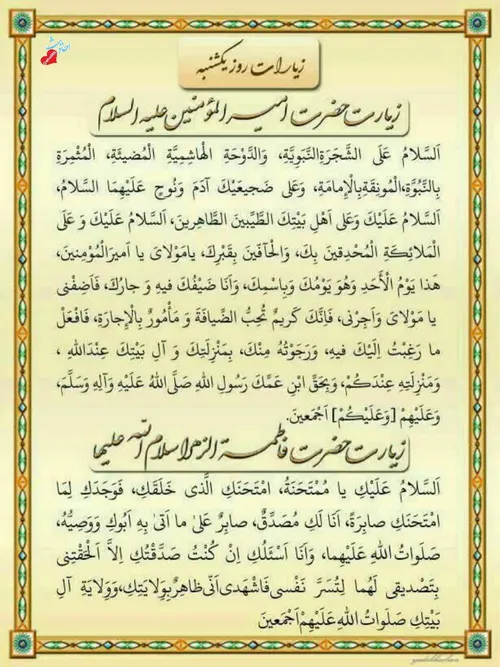 زیارات روز یکشنبه
زیارت حضرت امیرالمؤمنین علیه السلام
اَلسَّلامُ عَلَی الشَّجَرَةِالنَّبَوِیَّةِ، وَالدَّوْحَةِ الْهاشِمِیَّةِ الْمُضیئَةِ، الْمُثْمِرَةِ
بِالنُّبُوَّةِ،الْمُونِقَةِبِالْإِمامَةِ، وَعَلی ضَجیعَیْكَ آدَمَ وَنُوحٍ عَلَیْهِمَا السَّلامُ،
اَلسَّلامُ عَلَیْكَ وَعَلی اَهْلِ بَیْتِكَ الطَّیِّبینَ الطَّاهِرینَ، اَلسَّلامُ عَلَیْكَ وَ عَلَی
الْمَلائِكَةِ الْمُحْدِقینَ بِكَ، وَالْحآفّینَ بِقَبْرِكَ، یامَوْلایَ یا اَمیرَالْمُؤْمِنینَ،
هَذا یَوْمُ الْأَحَدِ وَهُوَ یَوْمُكَ وَبِاسْمِكَ، وَاَنَا ضَیْفُكَ فیهِ وَ جارُكَ، فَاَضِفْنی
یا مَوْلایَ وَاَجِرْنی، فَاِنَّكَ كَریمٌ تُحِبُّ الضِّیافَةَ وَ مَأْمُورٌ بِالْإِجارَةِ، فَافْعَلْ
ما رَغِبْتُ اِلَیْكَ فیهِ، وَرَجَوْتُهُ مِنْكَ، بِمَنْزِلَتِكَ وَ آلِ بَیْتِكَ عِنْدَاللهِ ،
وَمَنْزِلَتِهِ عِنْدَكُمْ، وَبِحَقِّ ابْنِ عَمِّكَ رَسُولِ اللهِ صَلَّی اللهُ عَلَیْهِ وَآلِهِ وَسَلَّمَ،
وَعَلَیْهِمْ [وَعَلَیْكُمْ] اَجْمَعینَ.
زیارت حضرت فاطمة الزهرا سلام الله علیها
اَلسَّلامُ عَلَیْكِ یا مُمْتَحَنَةُ، امْتَحَنَكِ الَّذی خَلَقَكِ، فَوَجَدَكِ لِمَا
امْتَحَنَكِ صابِرَةً، اَنَا لَكِ مُصَدِّقٌ، صابِرٌ عَلی ما اَتی بِهِ اَبُوكِ وَوَصِیُّهُ،
صَلَواتُ اللهِ عَلَیْهِما، وَاَنَا اَسْئَلُكِ اِنْ كُنْتُ صَدَّقْتُكِ اِلاَّ اَلْحَقْتِنی
بِتَصْدیقی لَهُما لِتُسَرَّ نَفْسی فَاشْهَدی اَنّی ظاهِرٌ بِوِلایَتِكِ،وَوِلایَةِ آلِ
بَیْتِكِ صَلَواتُ اللهِ عَلَیْهِمْ اَجْمَعینَ